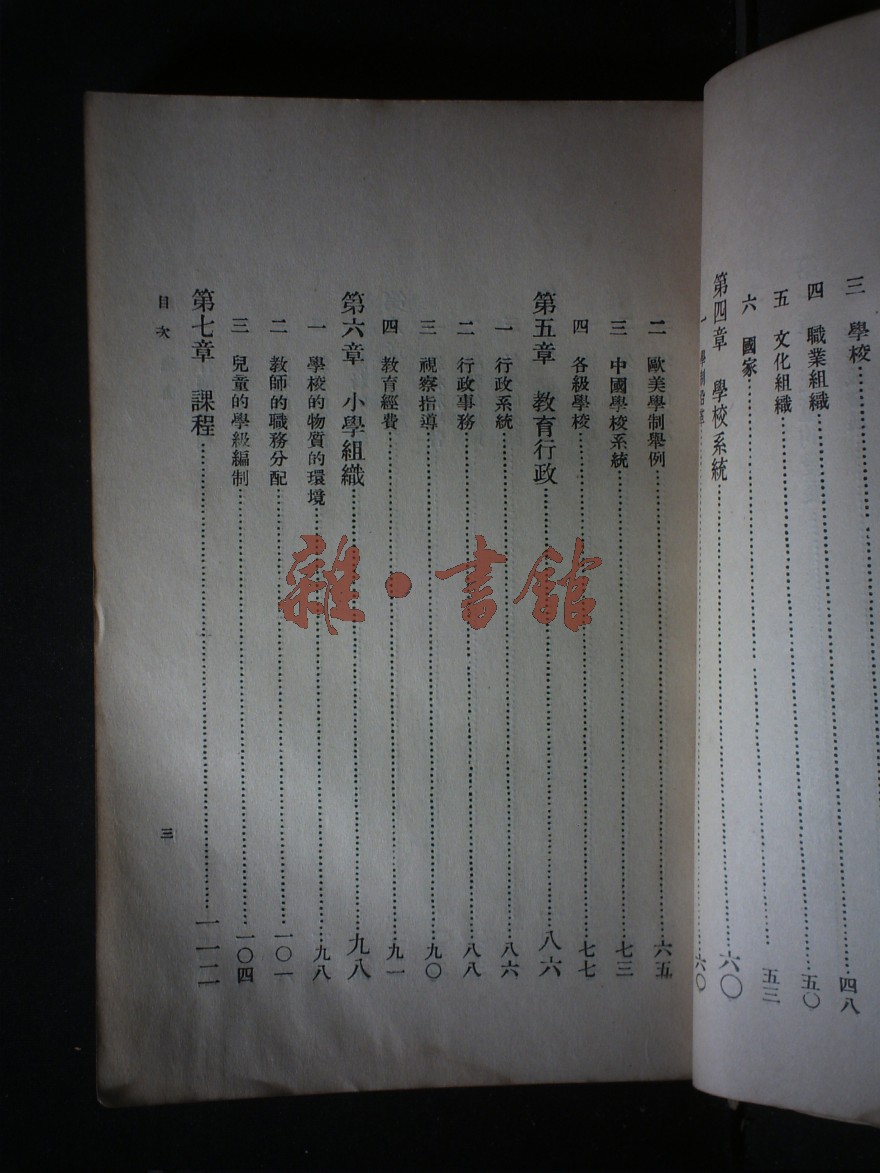 三 學校……四八
四 職業組織……五〇
五 文化組織……五三
六 國家……
第四章 學校系統……六〇
一 學制沿革……六〇
二 歐美學制舉例……六五
三 中國學校系統……七三
四 各級學校……七七
第五章 教育行政……八六
一 行政系統……八六
二 行政事務……八八
三 視察指導……九〇
四 教育經費……九一
第六章 小學組織……九八
一 學校的物質的環境……九八
二 教師的職務分配……一〇一
三 兒童的學級編制……一〇四
第七章 課程……一一二
目次
三
雜·書館